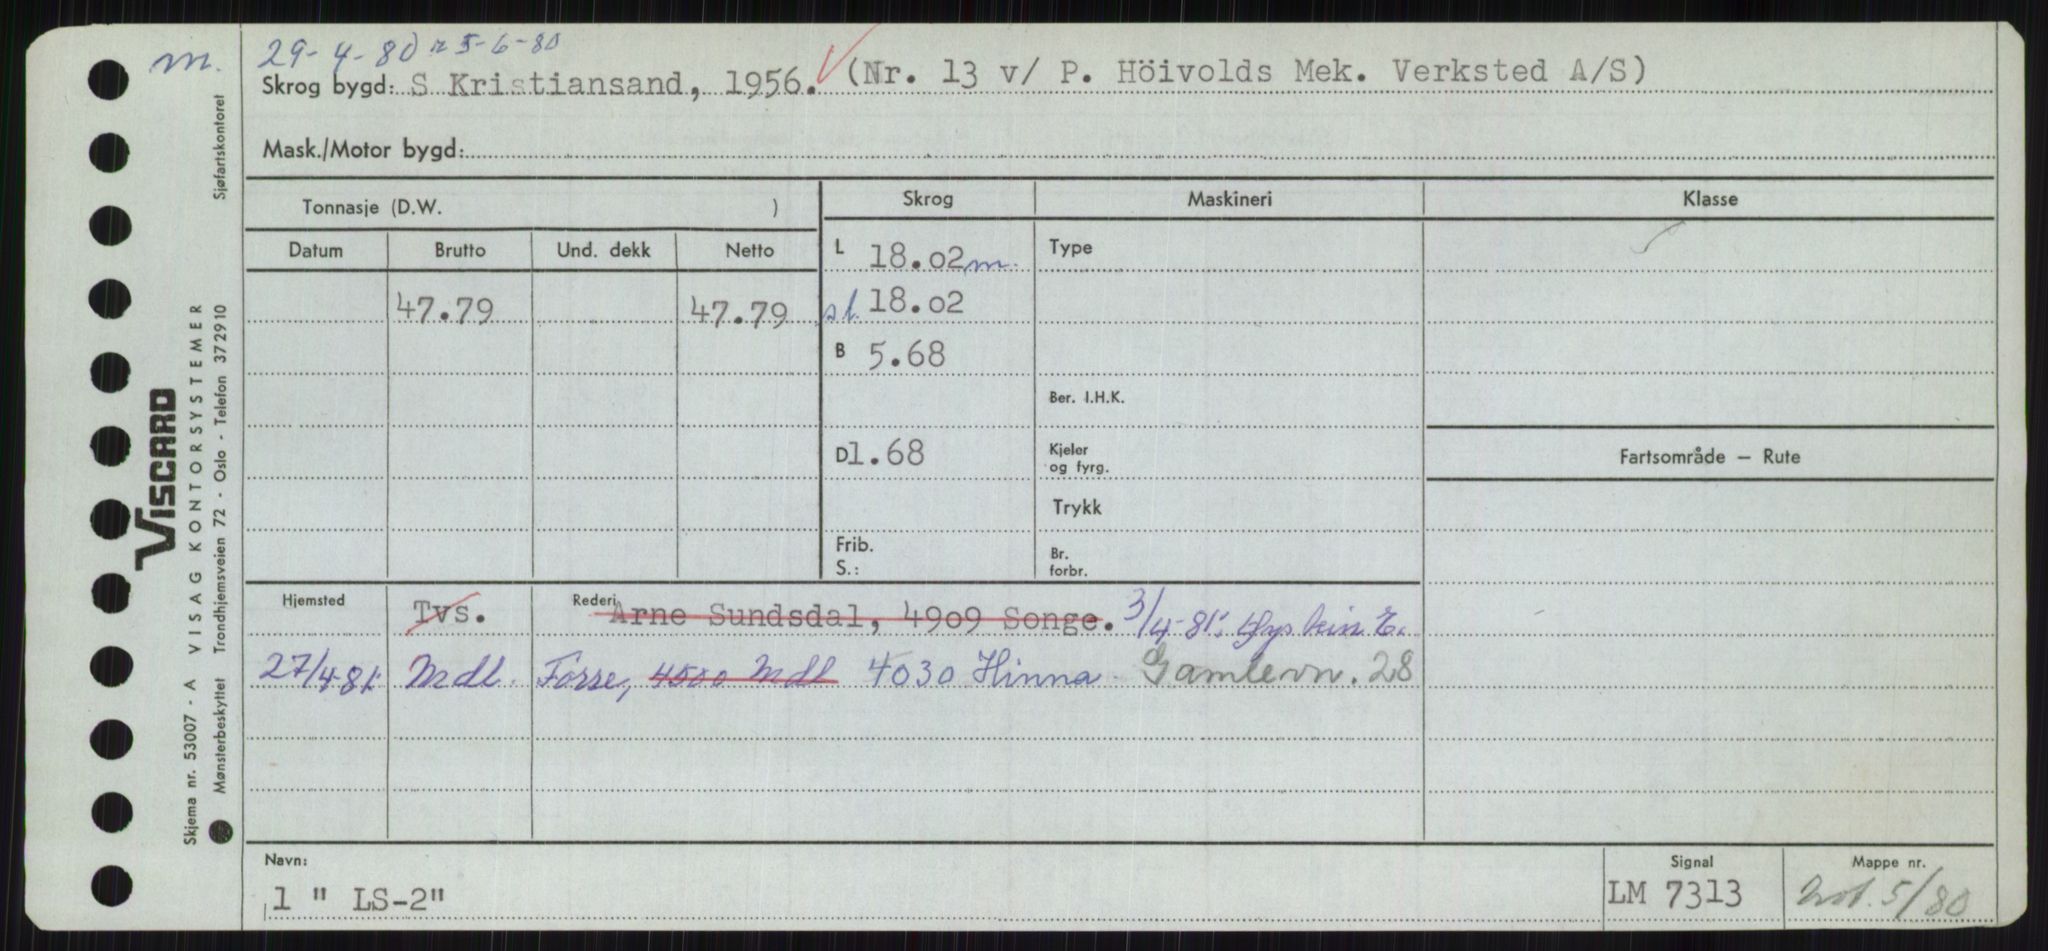 m. 29-4-80 5-6-80
Skrog bygd: S Kristiansand, 1956. (Nr. 13 v/ P. Höivolds Mek. Verksted A/S)
Mask./Motor bygd:
Tonnasje (D.W. )
Skrog
Maskineri
Klasse
Datum
Brutto
Und. dekk
Netto
L 18.02 m.
Type
47.79
47.79
st. 18.02
B 5.68
Ber. I.H.K.
D 1.68
Kjeler
og fyrg.
Fartsområde – Rute
Trykk
Frib.
S.:
Br.
forbr.
Hjemsted
Tvs.
Rederi
Arne Sundsdal, 4909 Songe. 3/4-81:
27/4-81: Mdl. Forse, 4500 Mdl 4030 Hinna Gamlevn. 28
Navn:
1 " LS-2"
Signal
LM 7313
Mappe nr.
5/80
VISCARD
VISAG KONTORSYSTEMER
Skjema nr. 53007 - A
Mønsterbeskyttet
Trondhjemsveien 72 - Oslo - Telefon 372910
Sjøfartskontoret